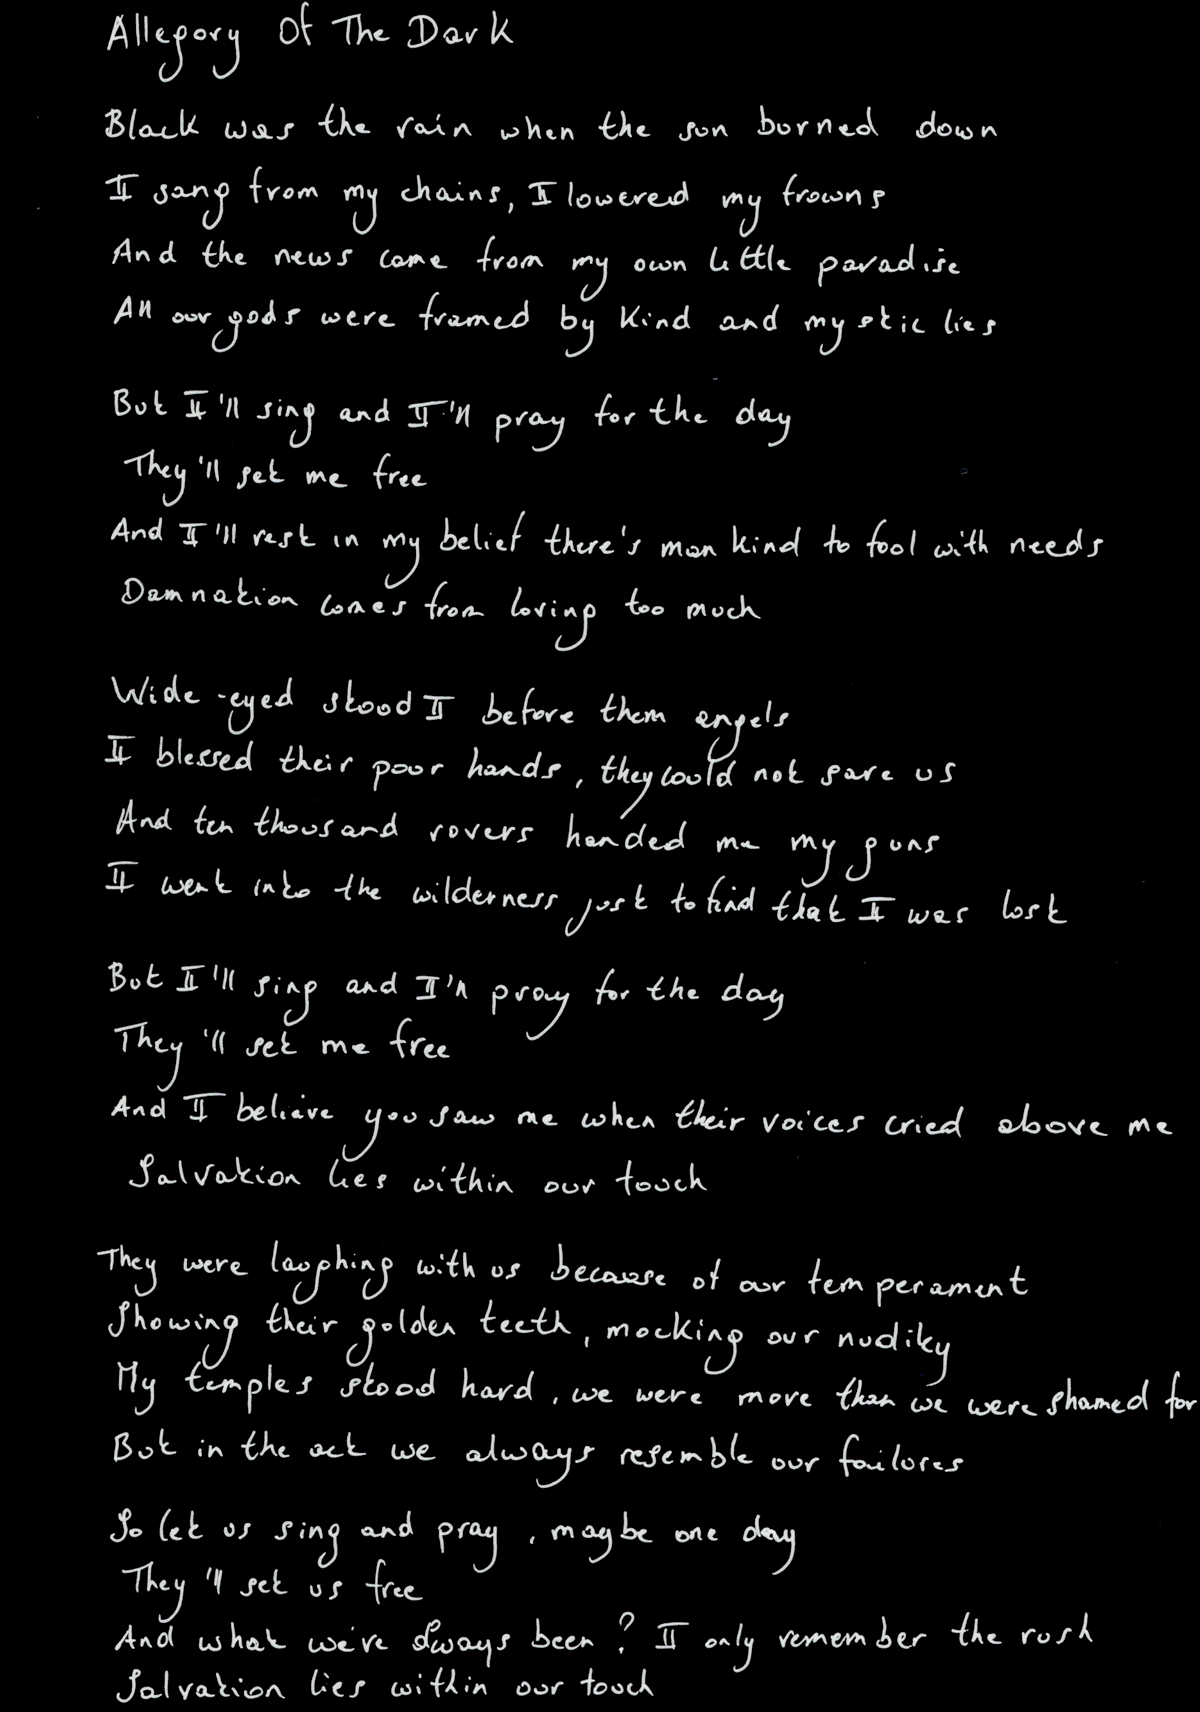 Allegory Of The Dark
Black was the rain when the sun burned down
I sang from my chains, I lowered my frowns
And the news came from my own little paradise
All our gods were framed by kind and mystic lies
But I'll sing and I'll pray for the day
They'll set me free
And I'll rest in my belief there's man kind to fool with needs
Damnation comes from loving too much
Wide-eyed stood I before them angels
I blessed their poor hands, they could not save us
And ten thousand rovers handed me my guns
I went into the wilderness just to find that I was lost
But I'll sing and I'll pray for the day
They'll set me free
And I believe you saw me when their voices cried above me
Salvation lies within our touch
They were laughing with us because of our temperament
Showing their golden teeth, mocking our nudity
My temples stood hard, we were more than we were shamed for
But in the act we always resemble our failures
So let us sing and pray, maybe one day
They'll set us free
And what we've always been? I only remember the rush
Salvation lies within our touch